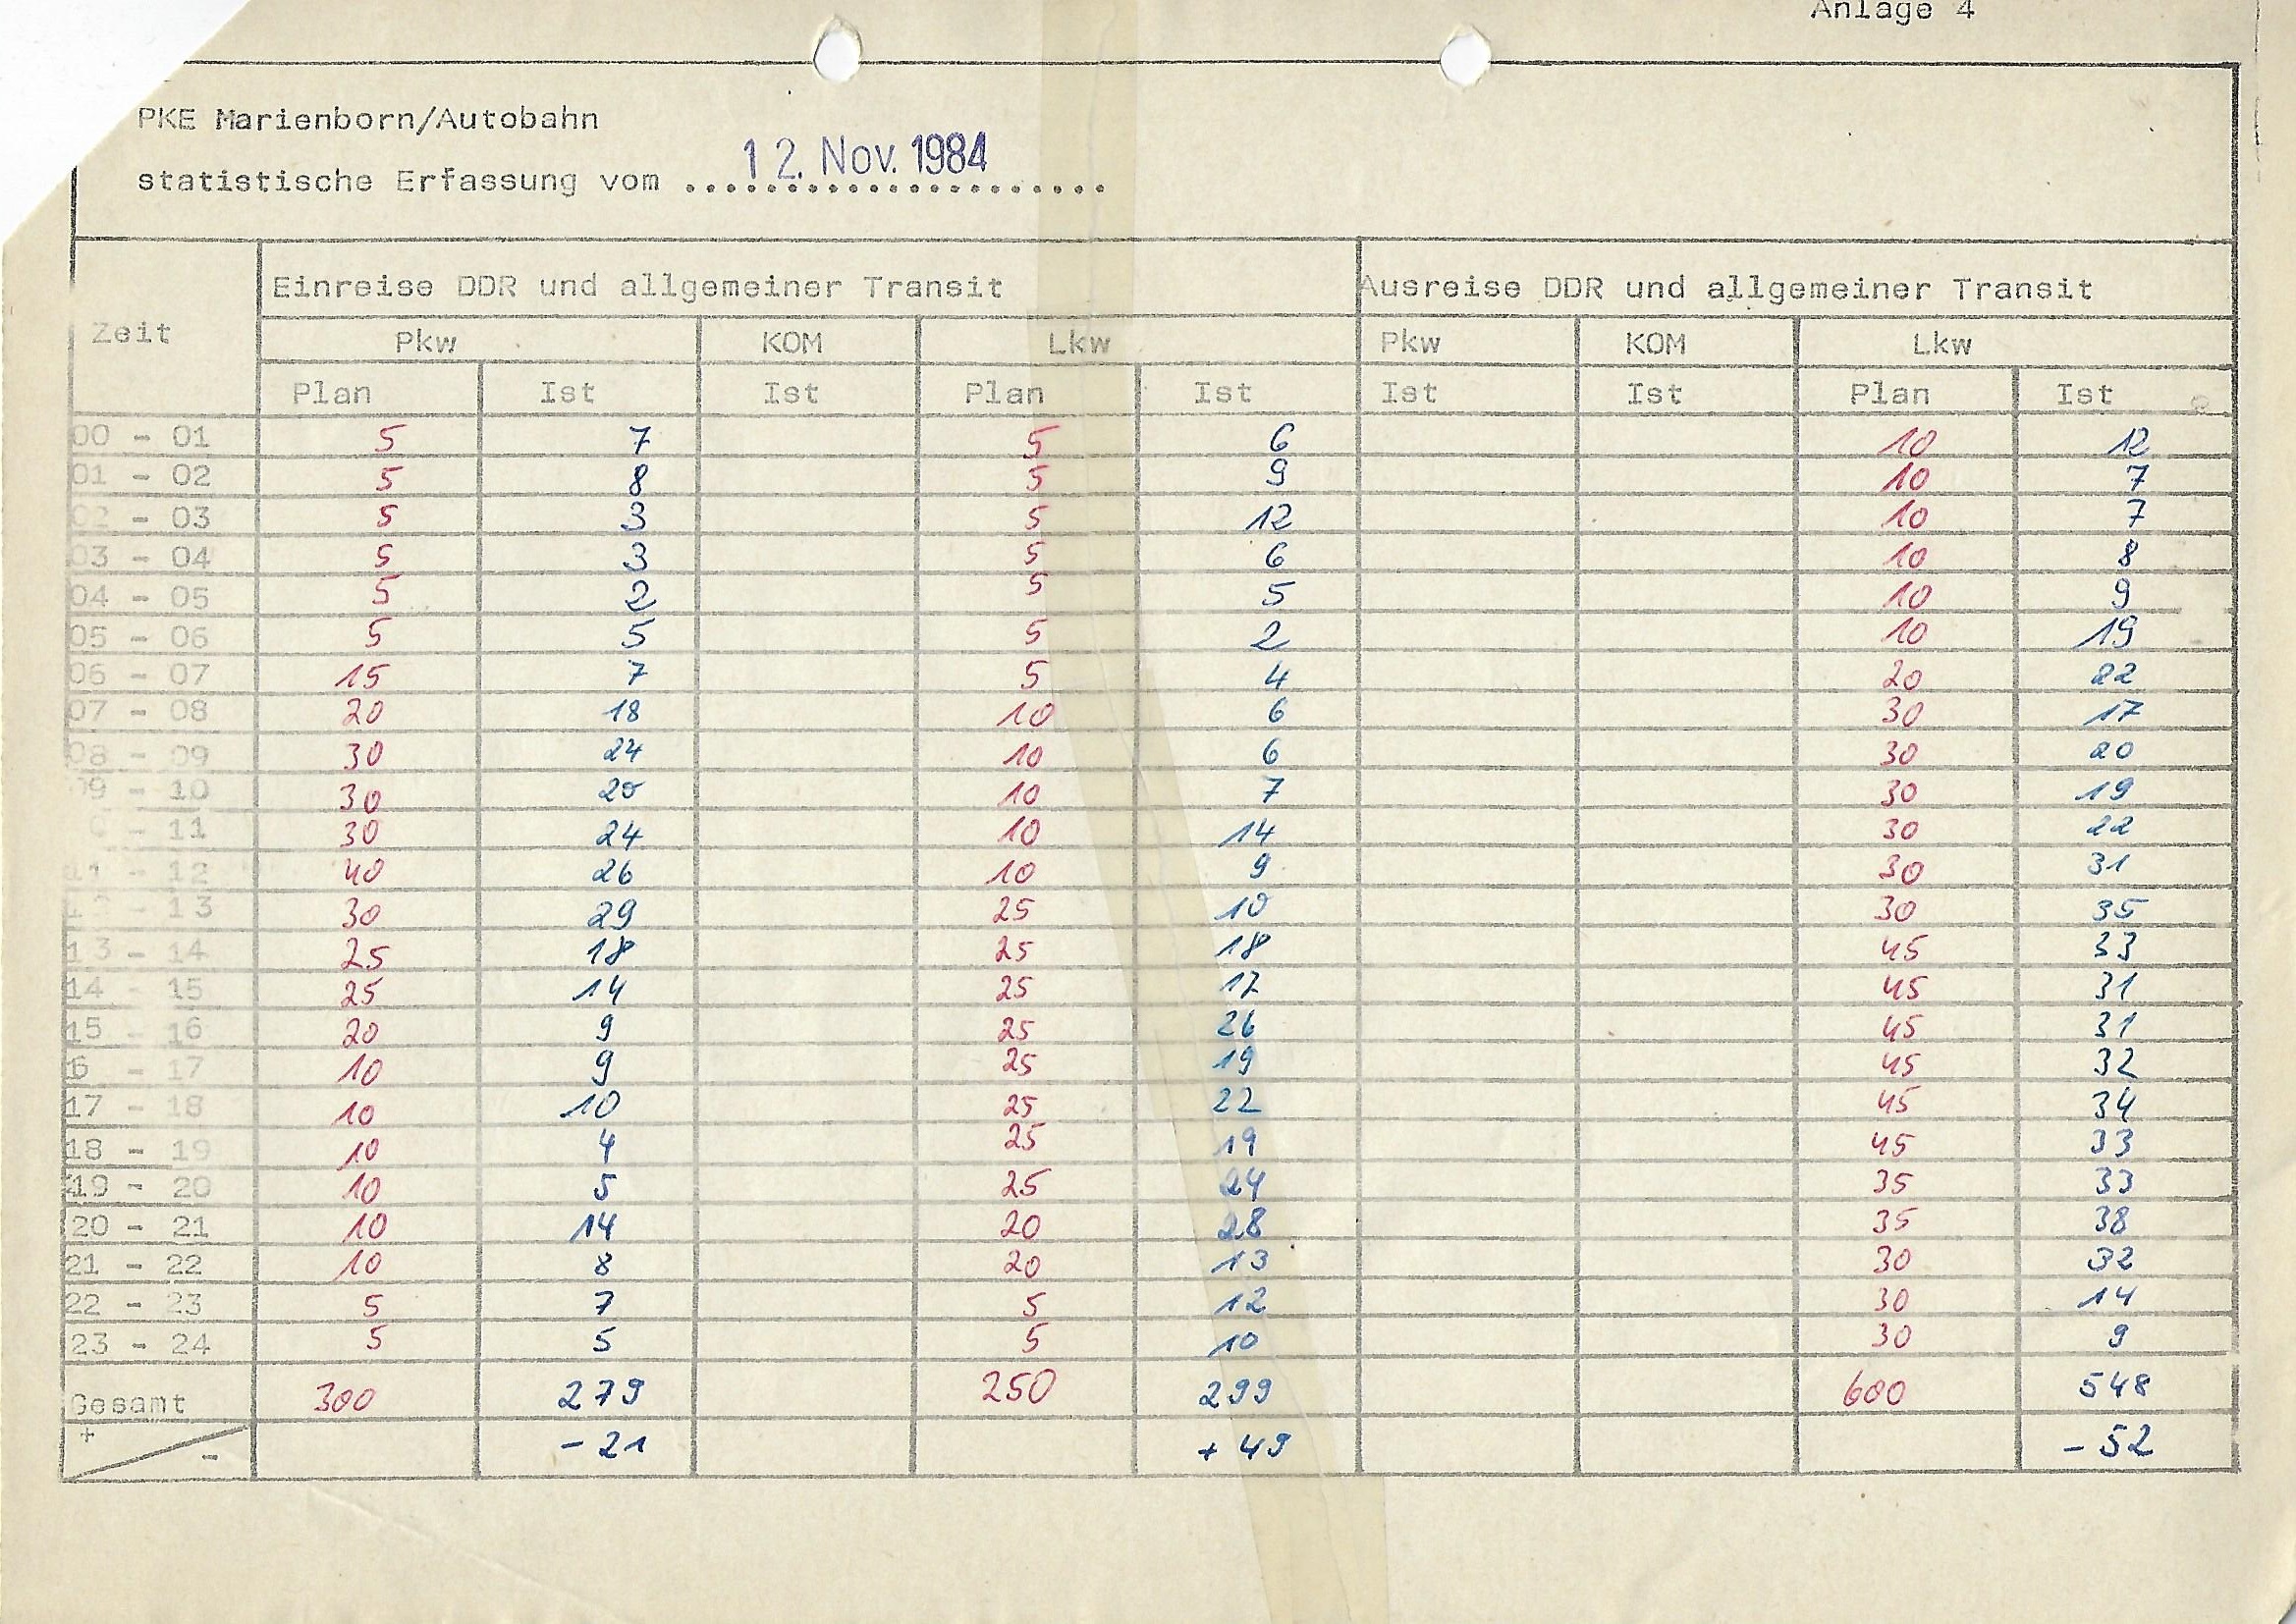 Anlage 4
PKE Marienborn/Autobahn
statistische Erfassung vom 12. Nov. 1984
Einreise DDR und allgemeiner Transit Ausreise DDR und allgemeiner Transit
Zeit Pkw KOM Lkw Pkw KOM Lkw
Plan Ist Ist Plan Ist Ist Ist Plan Ist
00 - 01 5 7 5 6 10 12
01 - 02 5 8 5 9 10 7
02 - 03 5 3 5 12 10 7
03 - 04 5 3 5 6 10 8
04 - 05 5 2 5 5 10 9
05 - 06 5 5 5 2 10 19
06 - 07 15 7 5 4 20 22
07 - 08 20 18 10 6 30 17
08 - 09 30 24 10 6 30 20
09 - 10 30 20 10 7 30 19
- 11 30 24 10 14 30 22
11 - 12 40 26 10 9 30 31
12 - 13 30 29 25 10 30 35
13 - 14 25 18 25 18 45 33
14 - 15 25 14 25 17 45 31
15 - 16 20 9 25 26 45 31
6 - 17 10 9 25 19 45 32
17 - 18 10 10 25 22 45 34
18 - 19 10 4 25 19 45 33
19 - 20 10 5 25 24 35 33
20 - 21 10 14 20 28 35 38
21 - 22 10 8 20 13 30 32
22 - 23 5 7 5 12 30 14
23 - 24 5 5 5 10 30 9
Gesamt 300 279 250 299 600 548
+ - - 21 + 49 - 52